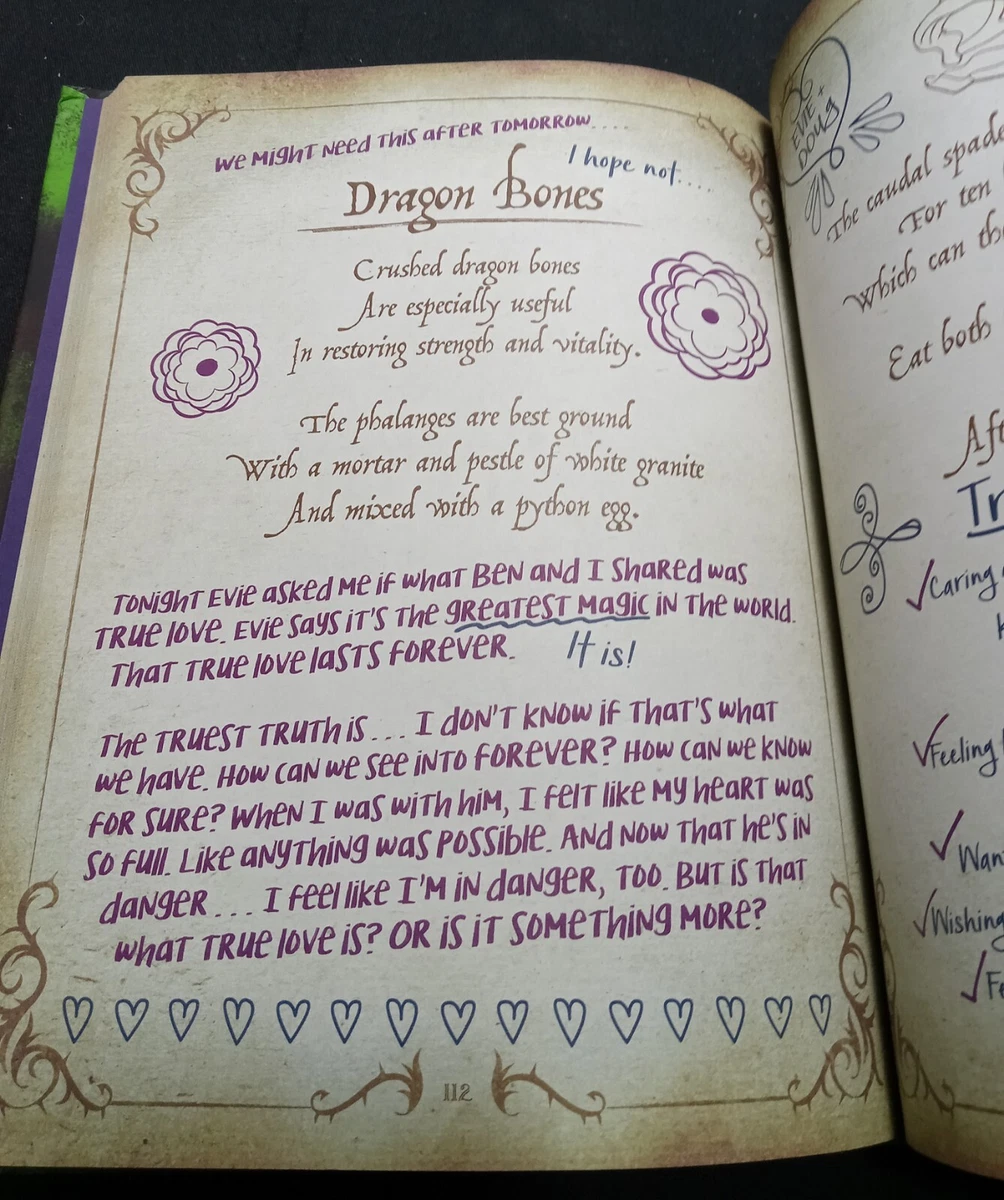 We might need this after tomorrow....
I hope not....
Dragon Bones
Crushed dragon bones
Are especially useful
In restoring strength and vitality.
The phalanges are best ground
With a mortar and pestle of white granite
And mixed with a python egg.
Tonight Evie asked me if what Ben and I shared was
true love. Evie says it's the greatest magic in the world.
That true love lasts forever. It is!
The truest truth is... I don't know if that's what
we have. How can we see into forever? How can we know
for sure? When I was with him, I felt like my heart was
so full. Like anything was possible. And now that he's in
danger... I feel like I'm in danger, too. But is that
what true love is? Or is it something more?
112
Evie +
Doug
The caudal spad
For ten
Which can th
Eat both
Af
Tr
Caring
Feeling
Wan
Wishing
Fe